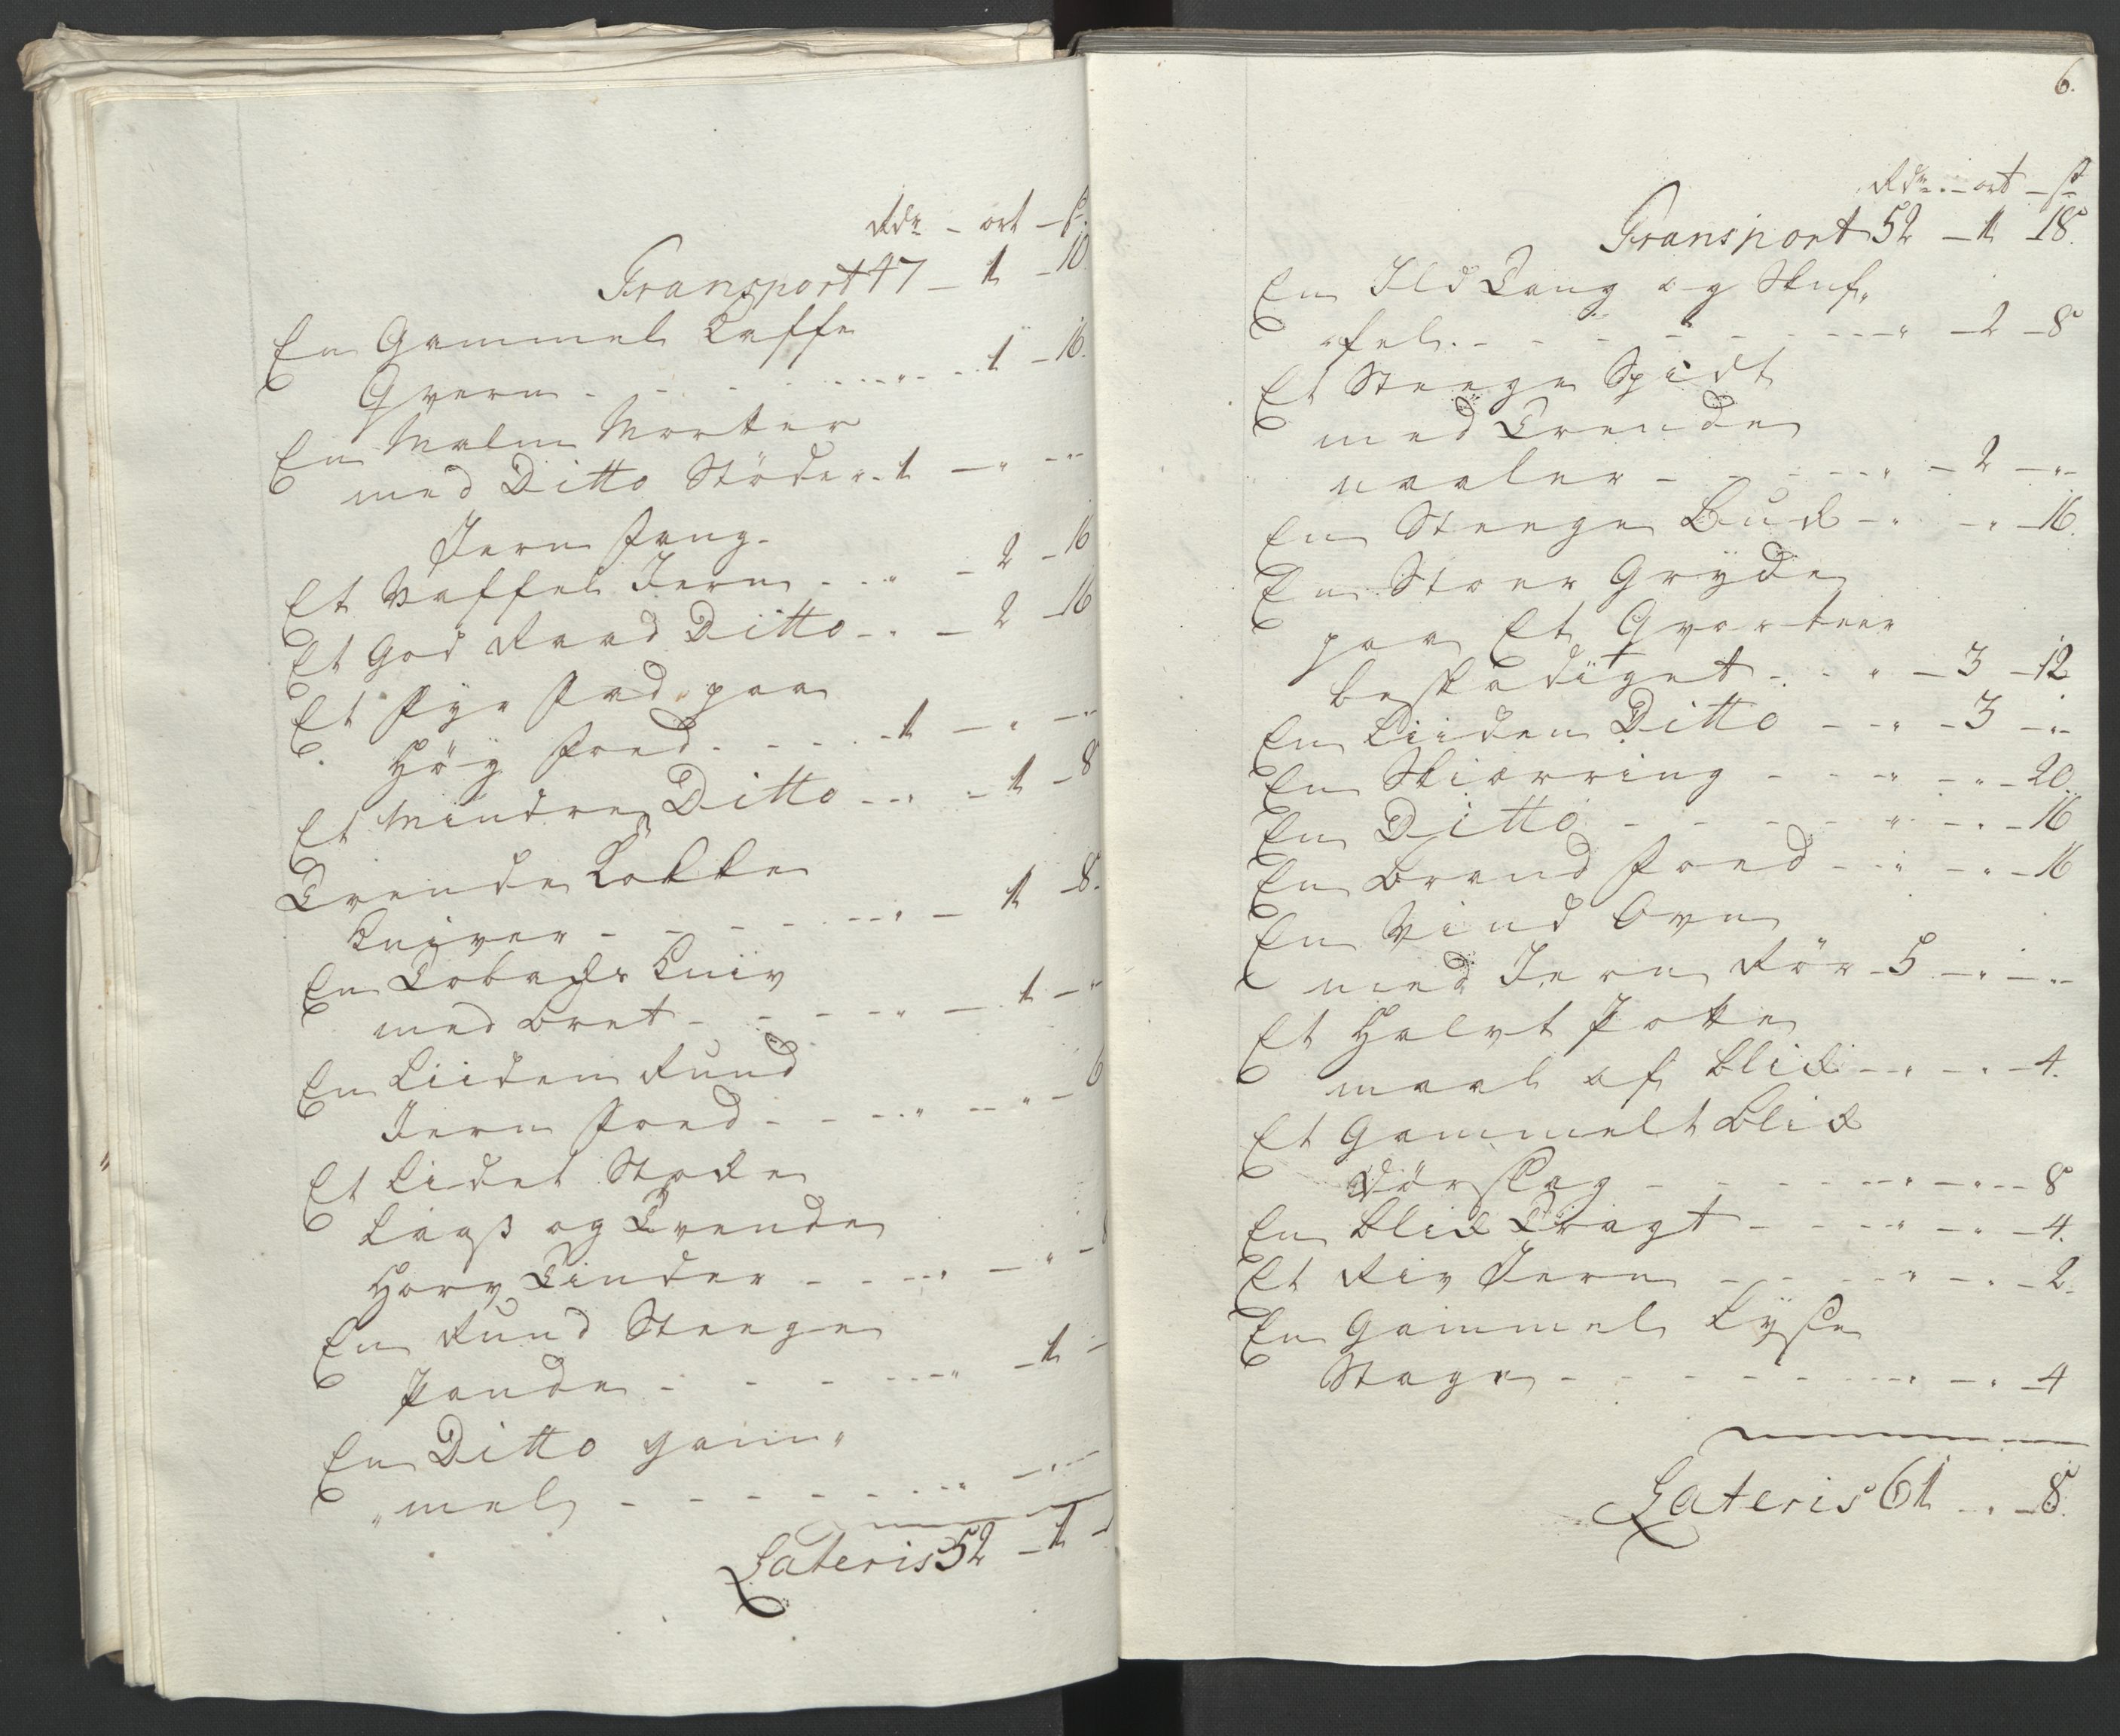 Rdr - ort - ß
Transport 47 - 1 - 10
En Gammel Caffe
Qvern - - - - - - - 1 - 16.
En Malm Morter
med Ditto Stöder - 1 - " - "
Jern fang -
Et Vaffel Jern - - - " - 2 - 16
Et God Raad Ditto - " - 2 - 16
Et Fyr Fad paa
Höy Foed - - - - 1 - " - "
Et Mindre Ditto - - " - 1 - 8
Tvende Hakke
Kniver - - - - - - " - 1 - 8.
En Tobachs Kniv
med Bret - - - - - " - 1 - "
En Liiden Rund
Jern Foed - - - - " - " - 6
Et Lidet Stokke
Laaß og Tvende
Horv Tinder - - - - " - " -
En Rund Steege
Pande - - - - - - " - 1 -
En Ditto gam"
"mel - - - - - - - " - " -
Lateris 52 - 1 -
6.
Rdr. - ort - ß
Transport 52 - 1 - 18.
En Ild Tang og Skuf"
"fel. - - - - - - - " - 2 - 8
Et Steege Spidt
med Trende
naaler - - - - - " - 2 - " -
En Steege Buk - " - " - 16.
En Stoer Gryde
paa Et Qvarteer
beskadiget - - " - 3 - 12
En Liiden Ditto - - " - 3 - " -
En Skiørring - - - " - " - 20.
En Ditto - - - - - " - " - 16
En Brand Foed - - " - " - 16
En Vind Ovn
med Jern Rör - 5 - " - "
Et Halvt Potte
maal af Blik - " - " - 4.
Et Gammelt Blik
Dørslag - - - - - " - " - 8
En Blik Tragt - - - " - " - 4.
Et Riv Jern - - - - " - " - 2.
En Gammel Lyse
Stage - - - - - - " - " - 4
Lateris 61 - " - 8.